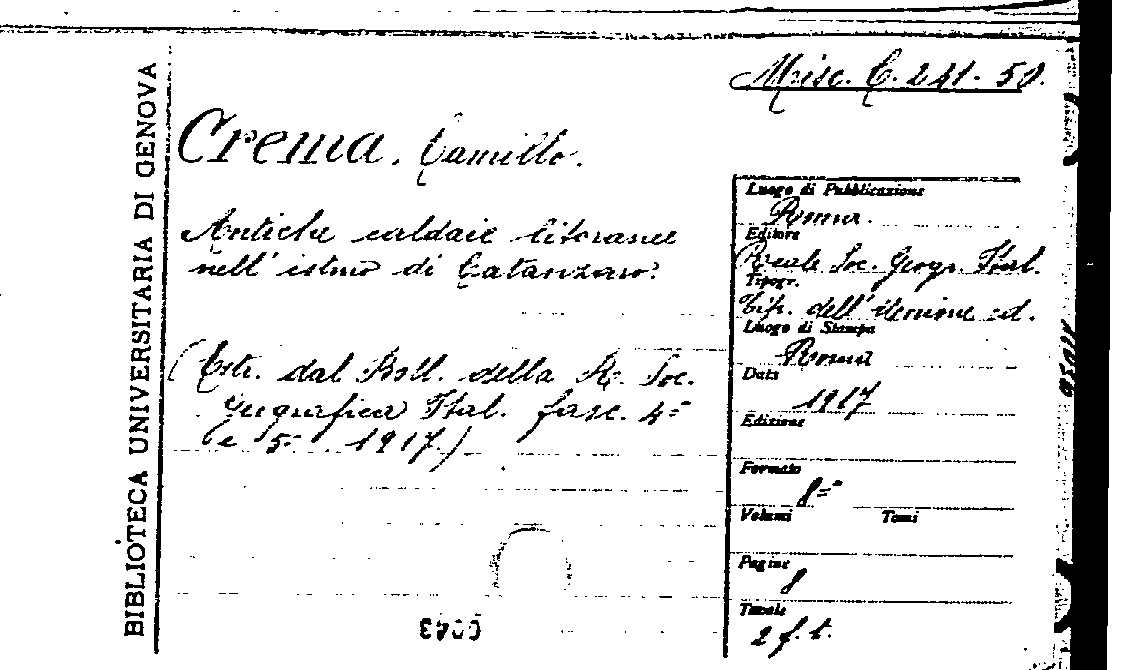 BIBLIOTECA UNIVERSITARIA DI GENOVA
Misc. C. 241. 50.
Crema. Camillo.
Antiche caldaie litoranee
nell'istmo di Catanzaro.
(Estr. dal Boll. della R. Soc.
Geografica Ital. fasc. 4º
e 5º 1917.)
Luogo di Pubblicazione
Roma.
Editore
Reale Soc. Geogr. Ital.
Tipogr.
Tip. dell' ed.
Luogo di Stampa
Roma
Data
1917
Edizione
Formato
8º
Volumi Tomi
Pagine
8
Tavole
2 f. t.
0043